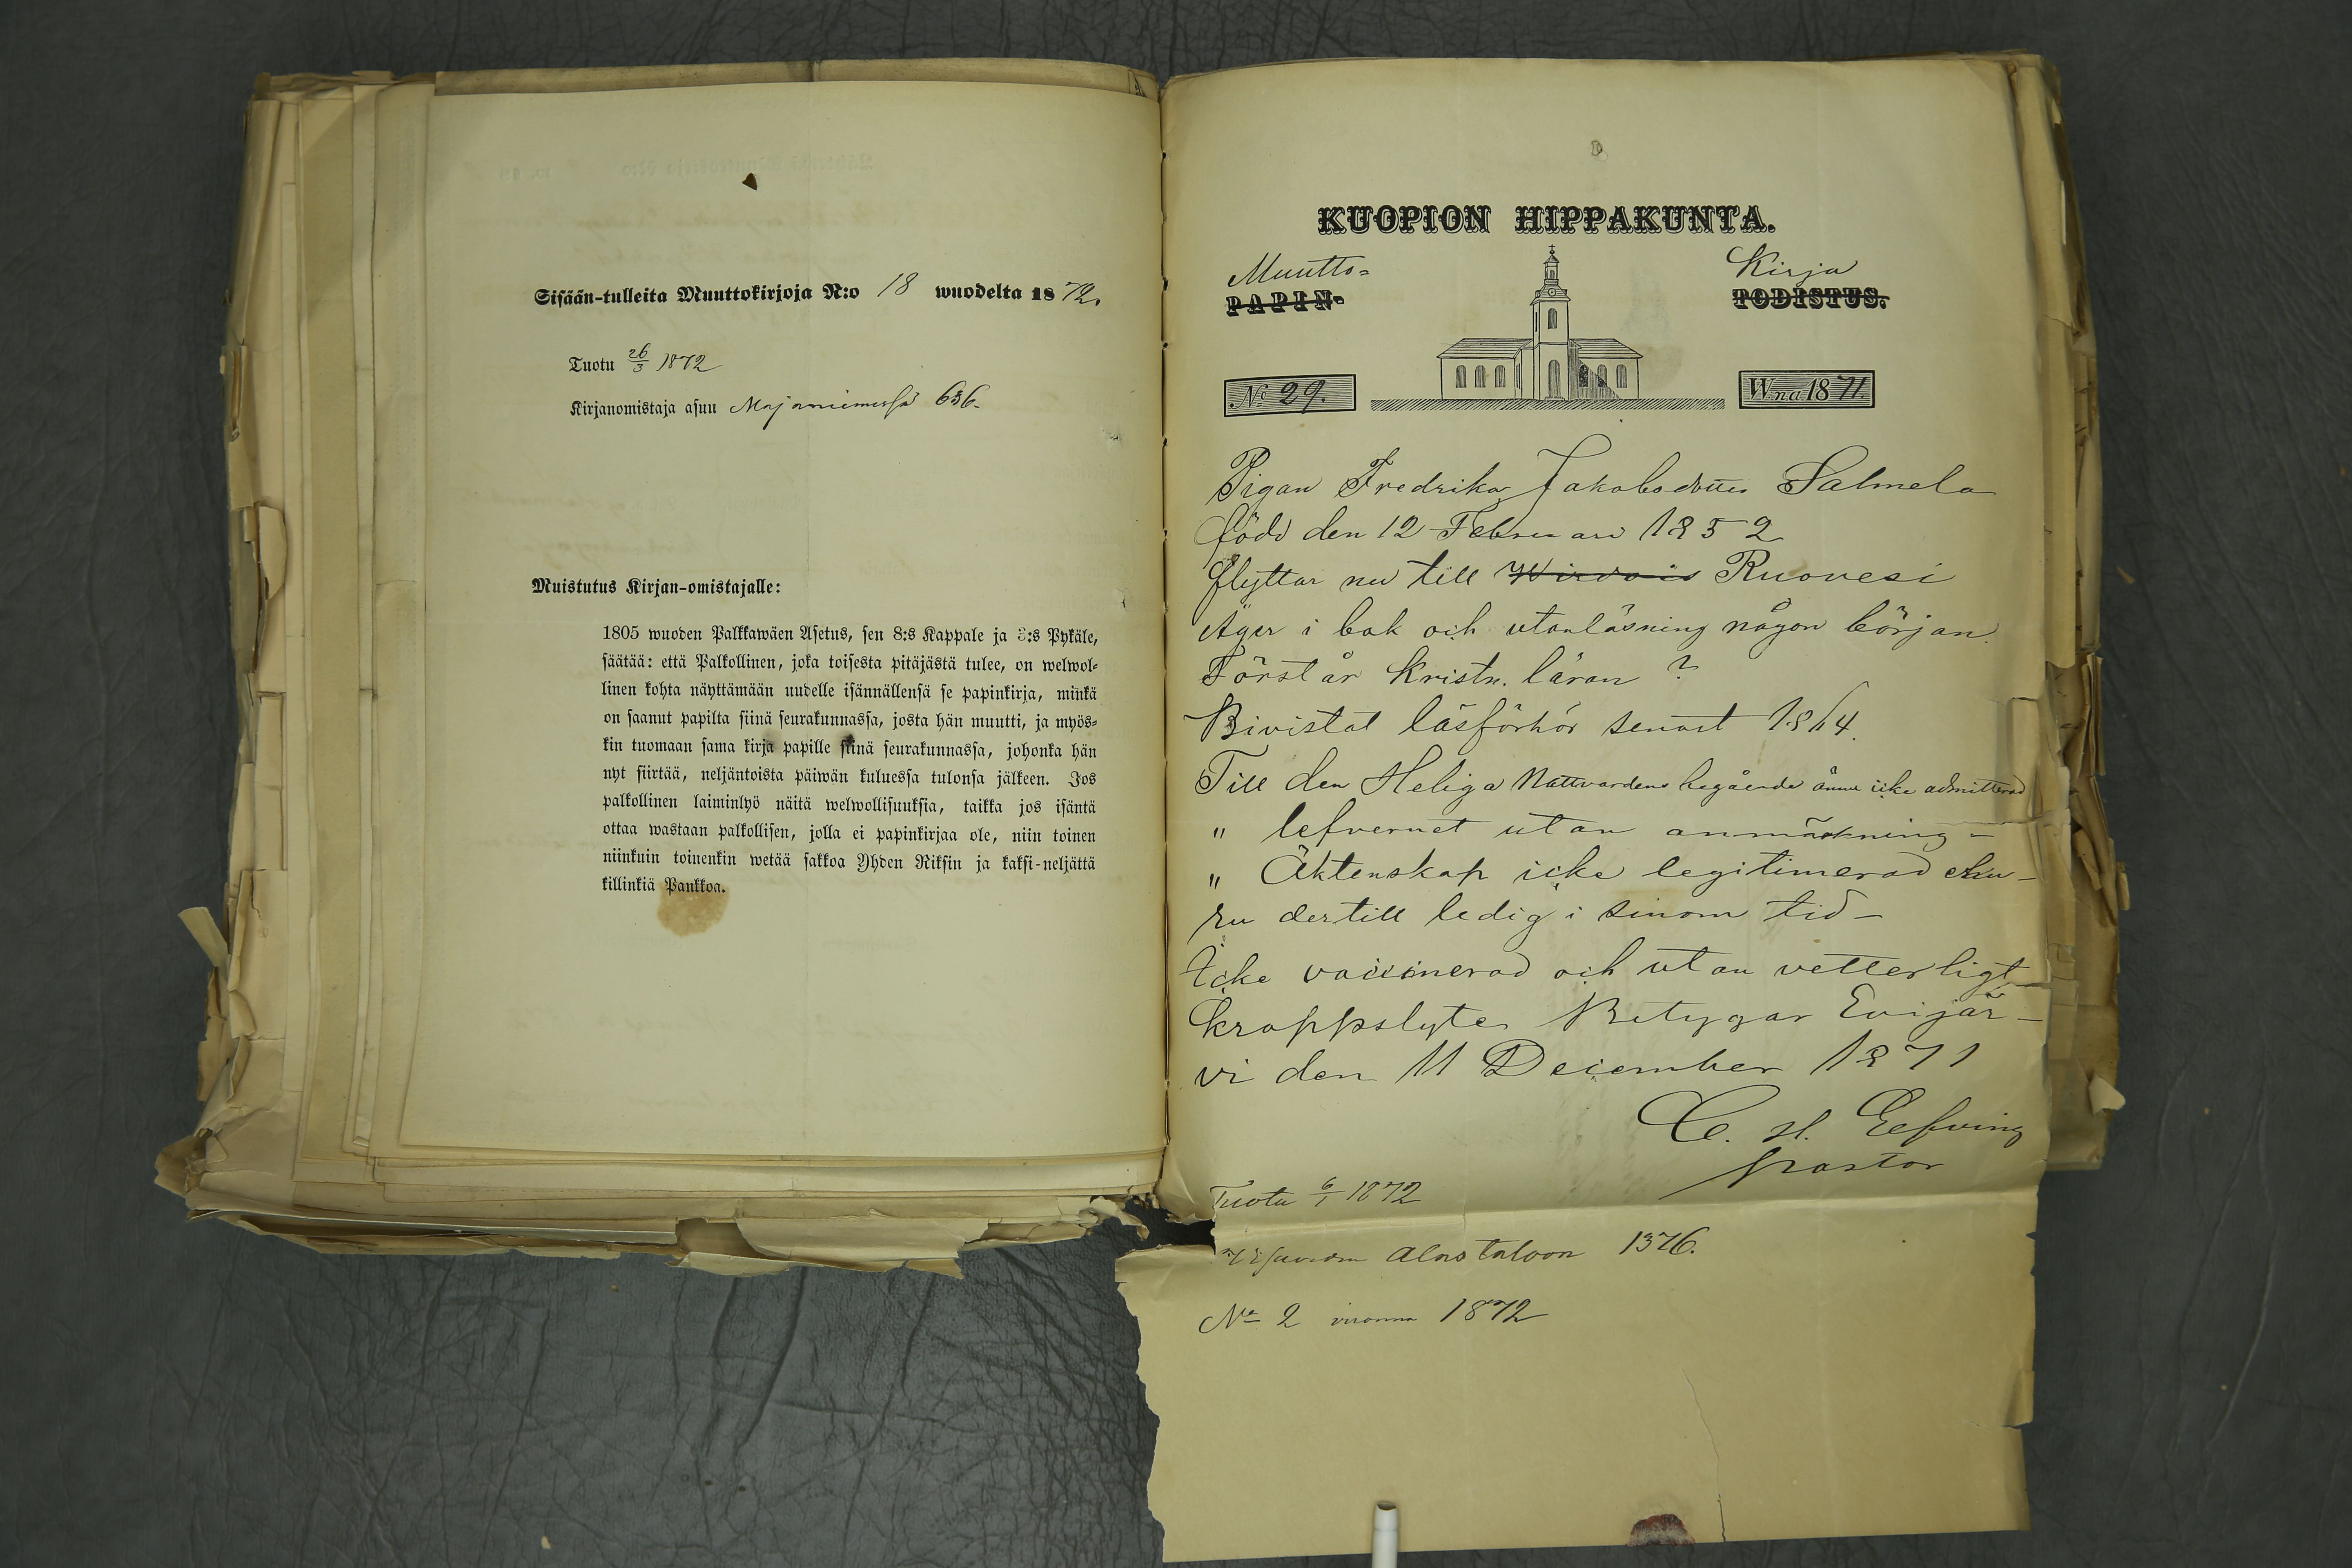 Sisään-tulleita Muuttokirjoja N:o 18 wuodelta 1872.
Tuotu 26/3 1872
Kirjanomistaja asuu Majaniemessä 636.
Muistutus Kirjan-omistajalle:
1805 wuoden Palkkawäen Asetus, sen 8:s Kappale ja 3:s Pykäle,
säätää: että Palkollinen, joka toisesta pitäjästä tulee, on welwol-
linen kohta näyttämään uudelle isännällensä se papinkirja, minkä
on saanut papilta siinä seurakunnassa, josta hän muutti, ja myös-
kin tuomaan sama kirja papille siinä seurakunnassa, johonka hän
nyt siirtää, neljäntoista päiwän kuluessa tulonsa jälkeen. Jos
palkollinen laiminlyö näitä welwollisuuksia, taikka jos isäntä
ottaa wastaan palkollisen, jolla ei papinkirjaa ole, niin toinen
niinkuin toinenkin wetää sakkoa Yhden Riksin ja kaksi-neljättä
killinkiä Pankkoa.
KUOPION HIPPAKUNTA.
Muutto= Kirja
PAPIN- TODISTUS.
No 29. Wna 1871.
Pigan Fredrika Jakobsdotter Salmela
född den 12 Februari 1852
flyttar nu till Wirdois Ruovesi
Äger i bok och utanläsning någon början.
Förstår kristn. läran ?
Bivistat läsförhör senast 1864.
Till den Heliga Nattvardens begående ännu icke admitterad
" lefvernet utan anmärkning -
" Äktenskap icke legitimerad ehu-
ru dertill ledig i sinom tid -
Icke vaccinerad och utan vetterligt
kroppslyte Betygar Evijär-
vi den 11 December 1871
C. H. Eefving
pastor
Tuotu 6/1 1872
Alastaloon 1376.
No 2 vuonna 1872